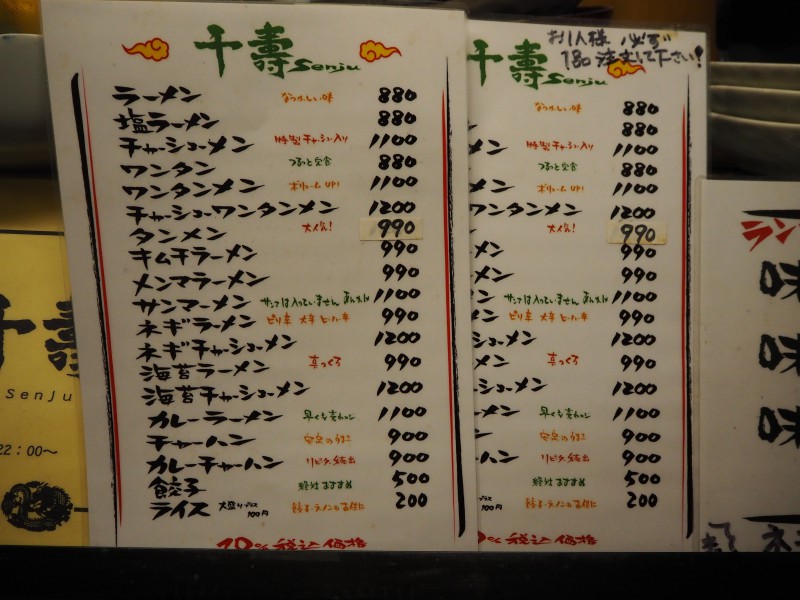 千壽 Senju
ラーメン なつかしい味 880
塩ラーメン 880
チャーシューメン 特製チャーシュー入り 1100
ワンタン つるっと完食 880
ワンタンメン ボリュームUP! 1100
チャーシューワンタンメン 1200
タンメン 大人気! 990
キムチラーメン 990
メンマラーメン 990
サンマーメン サンマは入っていません 1100
ネギラーメン ピリ辛 大辛 990
ネギチャーシューメン 1200
海苔ラーメン 真っくろ 990
海苔チャーシューメン 1200
カレーラーメン 1100
チャーハン 安定のうまさ 900
カレーチャーハン リピーター続出 900
餃子 絶対おすすめ 500
ライス 大盛りプラス100円 200
10%税込価格
お1人様 必ず
1品注文して下さい!
千壽 Senju
なつかしい味 880
880
メン 特製チャーシュー入り 1100
つるっと完食 880
メン ボリュームUP! 1100
ワンタンメン 1200
大人気! 990
メン 990
メン 990
ン サンマは入っていません 1100
メン ピリ辛 大辛 990
シューメン 1200
メン 真っくろ 990
シューメン 1200
メン 1100
ン 安定のうまさ 900
ーハン リピーター続出 900
絶対おすすめ 500
プラス100円 200
%税込価格
千壽
Senju
22:00〜
ラン
味
味
味